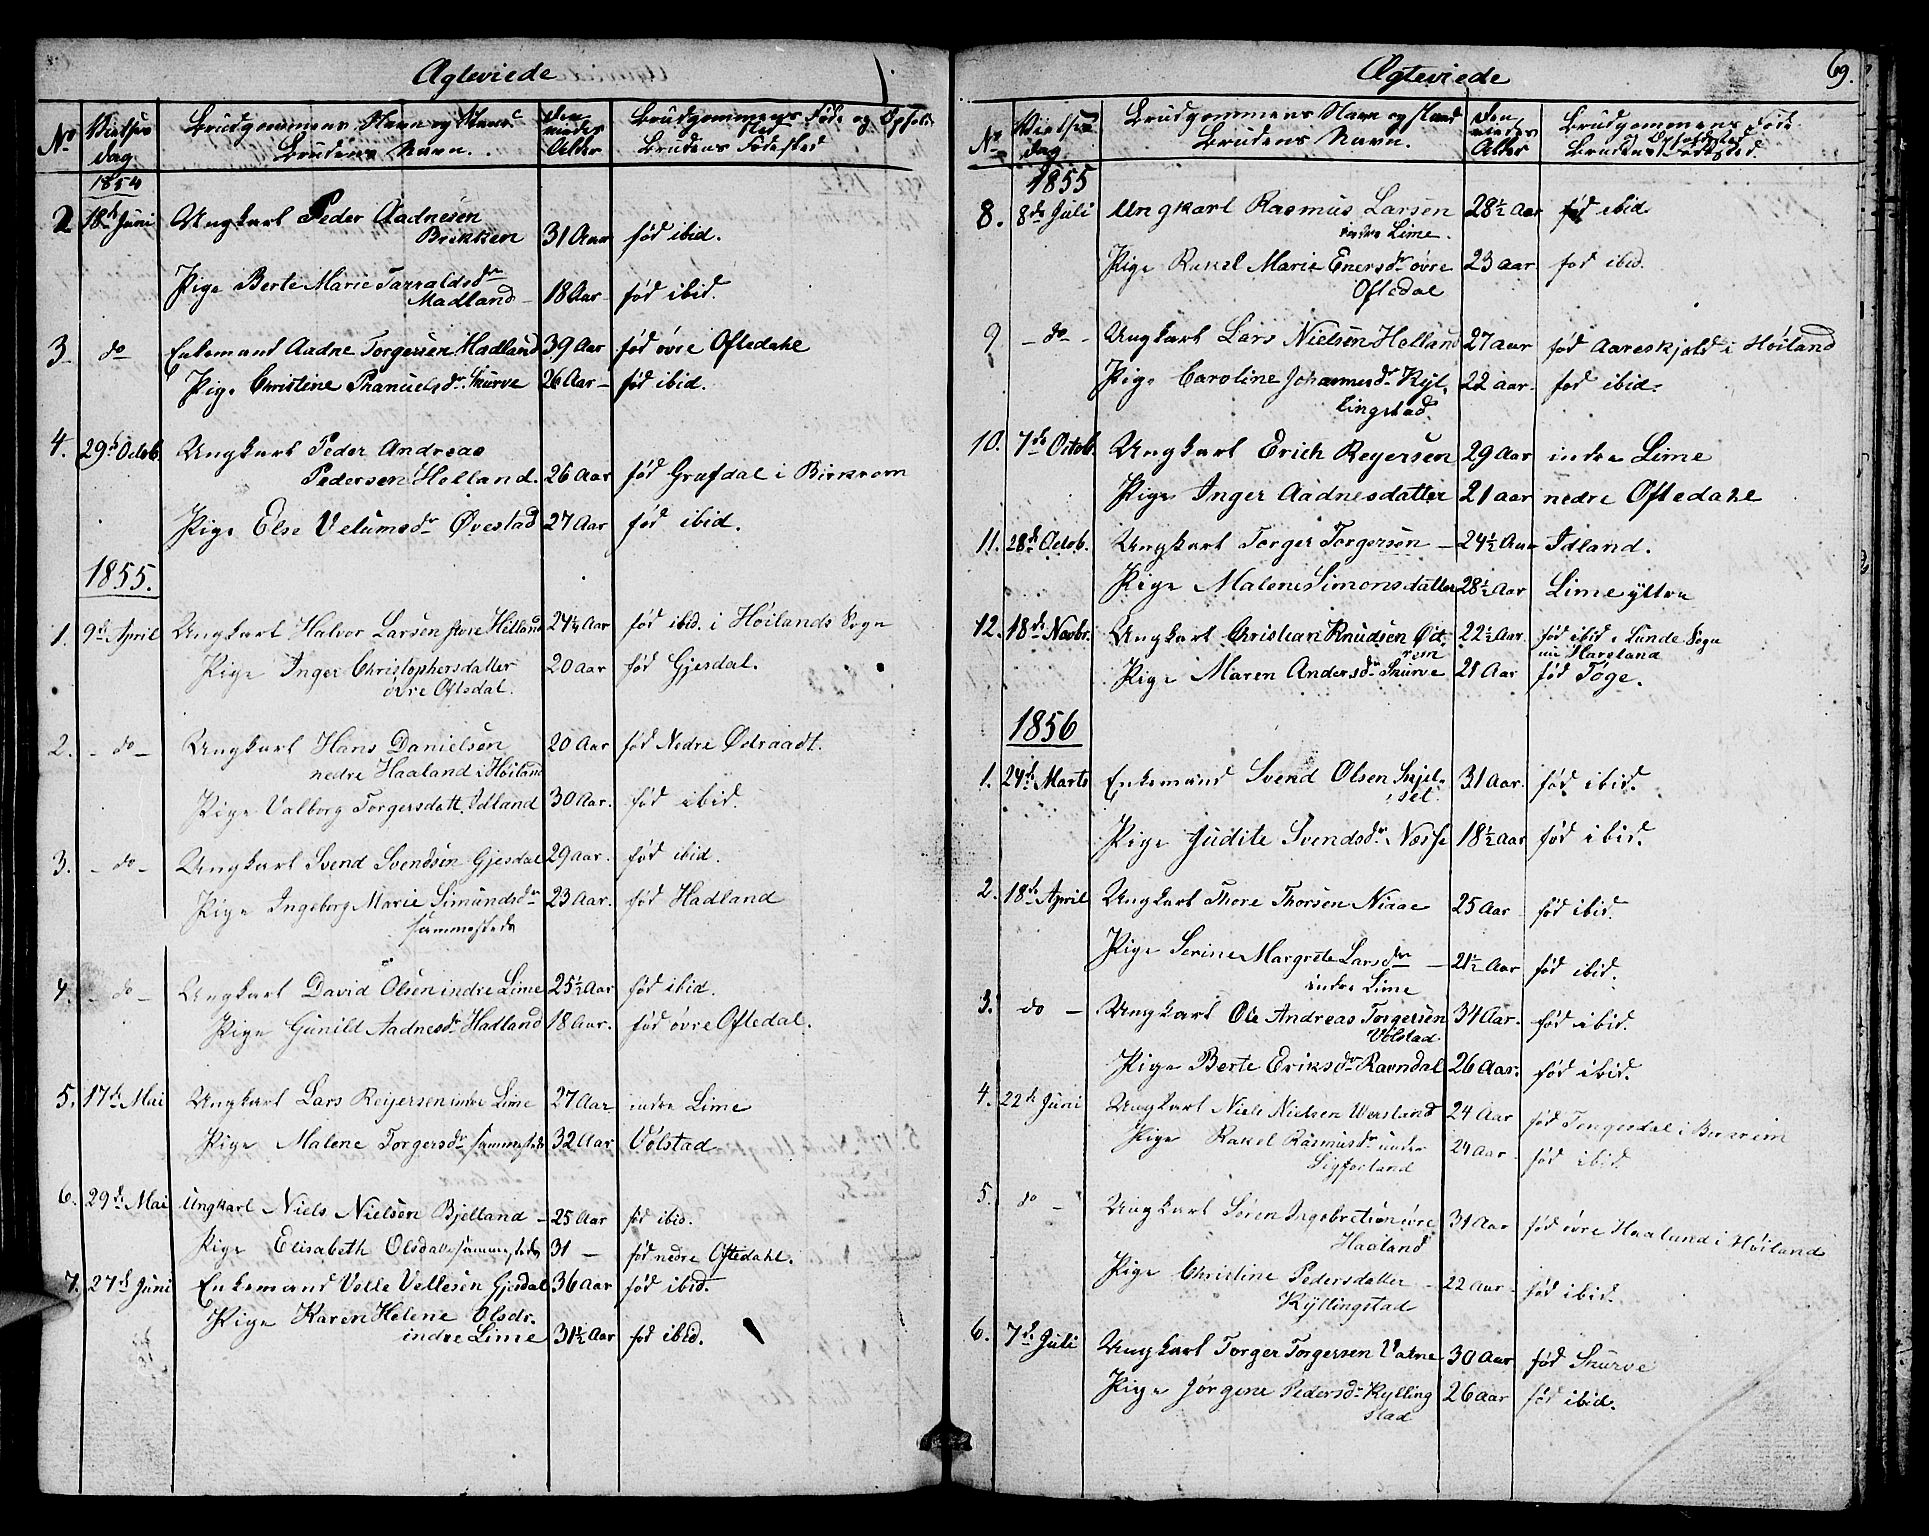 Ægteviede
No Vielses dag Brudgommens Navn og Stand Brudens Navn. Den vieedes Alder Brudgommens Føde og Opholdsted Brudens Fødested
1854
2 18de Juni Ungkarl Peder Aadnesen
Brekken 31 Aar fød ibid.
Pige Berte Marie Tarraldsdr
Madland 18 Aar fød ibid.
3 do Enkemand Aadne Torgersen Hadland 39 Aar fød øvre Oftedahl
Pige Christine Phanuelsdr Skurve 26 Aar fød ibid.
4. 29de Octob. Ungkarl Peder Andreas
Pedersen Holland. 26 Aar fød Grafdal i Birkrem
Pige Else Velumsdr Øvestad 27 Aar fød ibid.
1855.
1. 9de April Ungkarl Halvor Larsen store Hetland 24¼ Aar fød ibid. i Høilands Sogn
Pige Inger Christophersdatter 20 aar fød Gjesdal.
øvre Oftedal.
2. do Ungkarl Hans Danielsen 20 Aar fød Nedre Ødraadt.
nedre Haaland i Høiland
Pige Valborg Torgersdatt. Idland 30 Aar. fød ibid.
3. do Ungkarl Svend Svendsen Gjesdal 29 aar. fød ibid.
Pige Ingeborg Marie Simundsdr 23 Aar. fød Hadland
sammesteds
4. do Ungkarl David Olsen indre Lime 25½ Aar fød ibid.
Pige Gunild Aadnesdr Hadland 18 Aar. fød øvre Oftedal.
5. 17de Mai Ungkarl Lars Reijersen indre Lime 27 Aar indre Lime
Pige Malene Torgersdr sammesteds 32 Aar Volstad
6. 29de Mai Ungkarl Niels Nielsen Bjelland 25 Aar fød ibid.
Pige Elisabeth Olsdatter sammesteds 31 — fød nedre Oftedahl.
7. 27de Juni Enkemand Velle Vellesen Gjesdal 36 Aar fød ibid.
Pige Karen Helene Olsdr.
indre Lime 31½ Aar fød ibid.
Ægteviede 69.
No. Vielses dag Brudgommens Navn og Stand Brudens Navn. Den vieedes Alder Brudgommens Føde Opholdsted Brudens Fødested.
1855
8. 8de Juli Ungkarl Rasmus Larsen 28½ Aar fød ibid
indre Lime.
Pige Rakel Marie Enersdr øvre 23 aar fød ibid.
Oftedal
9 do Ungkarl Lars Nielsen Helland 27 aar fød Aareskjold i Høiland
Pige Caroline Johannesdr Kyl
lingstad. 22 aar. fød ibid.
10. 7de Octob. Ungkarl Erich Reyersen 29 Aar indre Lime
Pige Inger Aadnesdatter 21 aar nedre Oftedahl
11. 28de Octob. Ungkarl Torger Torgersen 24½ Aar Idland.
Pige Malene Simonsdatter 28½ Aar Lime ÿttre
12. 18de Novbr. Ungkarl Christian Knudsen Öd 22½ Aar. fød ibid i Lunde Sogn
Pige Maren Andersdr Skurve 21 Aar fød Töge.
1856
1. 24de Marts Enkemand Svend Olsen Skjel
set 31 Aar. fød ibid.
Pige Judite Svendsdr. Næsse 18½ aar fød ibid.
2. 18de April Ungkarl Thore Thorsen Niaae 25 Aar fød ibid.
Pige Serine Margrete Larsdr 21½ Aar fød ibid.
indre Lime
3. do Ungkarl Ole Andreas Torgersen 31 Aar. fød ibid.
Volstad.
Pige Berte Eriksdr Ravndal 26 Aar. fød ibid.
4. 22de Juni Ungkarl Niels Nielsen Versland 24 Aar fød Tengesdal i Bierkreim
Pige Rakel Rasmusdr under 24 Aar fød ibid.
Sigforland
5. do Ungkarl Søren Ingebretsen øvre 31 Aar fød øvre Haaland i Høiland
Haaland
Pige Christine Pedersdatter 22 Aar fød ibid.
Kÿllingstad
6. 7de Juli Ungkarl Torger Torgersen Valne 30 Aar fød Skurve
Pige Jørgene Pedersdr Kylling 26 Aar fød ibid.
stad